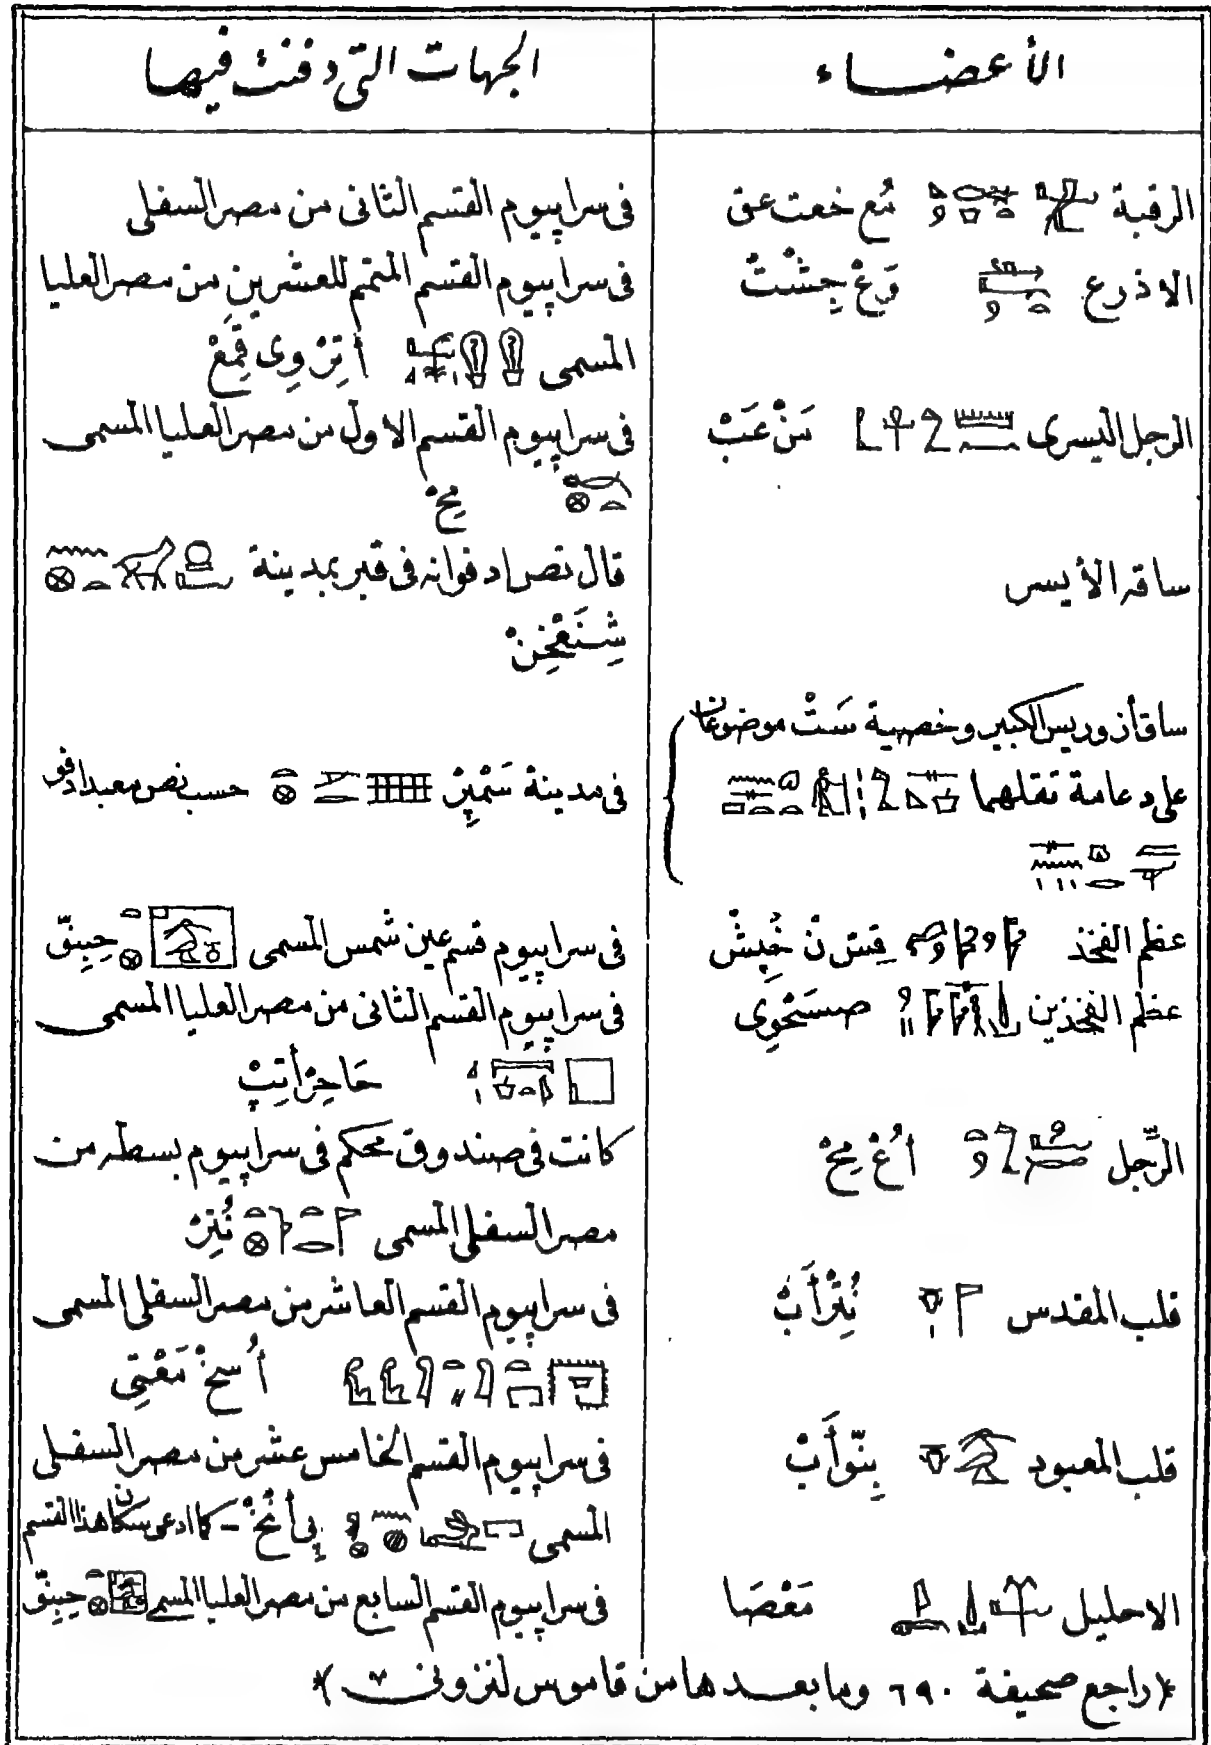 الأعضاء	الجهات التى دفنت فيها
الرقبة نُع خعت عق	فى سرابيوم القسم الثانى من مصر السفلى
الاذرع وَعْ جِشْتْ	فى سرابيوم القسم المتمم للعشرين من مصر العليا
المسمى أتِرْ وِى قِمَعْ
الرجل اليسرى مَنْ عَبْ	فى سرابيوم القسم الاول من مصر العليا المسمى
مِحْ
ساقه الأيسر	قال نص ادفوانه فى قبر بمدينة
شِنَعْخِنْ
ساق أزوريس الكبير وخصية سَتْ موضوعان
على دعامة تقلهما	فى مدينة سَمْپِرْ حسب نص معبد ادفو
عظم الفخذ قِسْ نْ خُپِشْ	فى سرابيوم قسم عين شمس المسمى حِبِنّ
عظم الفخذين صسَحْوِى	فى سرابيوم القسم الثانى من مصر العليا المسمى
حَاحِرْأتِپْ
الرِّجل أُعْ مِحْ	كانت فى صندوق محكم فى سرابيوم بسطه من
مصر السفلى المسمى نُتِرْ
قلب المقدس نُتِرْأَبْ	فى سرابيوم القسم العاشر من مصر السفلى المسمى
أُسِخْ مَعْتِى
قلب المعبود بِنّوأَبْ	فى سرابيوم القسم الخامس عشر من مصر السفلى
المسمى پِى أُنُخْ - كما ادعى سكان هذا القسم
الاحليل مَعْصَا	فى سرابيوم القسم السابع من مصر العليا المسمى حِبِنّ
(راجع صحيفة ٦٩٠ وما بعدها من قاموس لنزونى ٧)